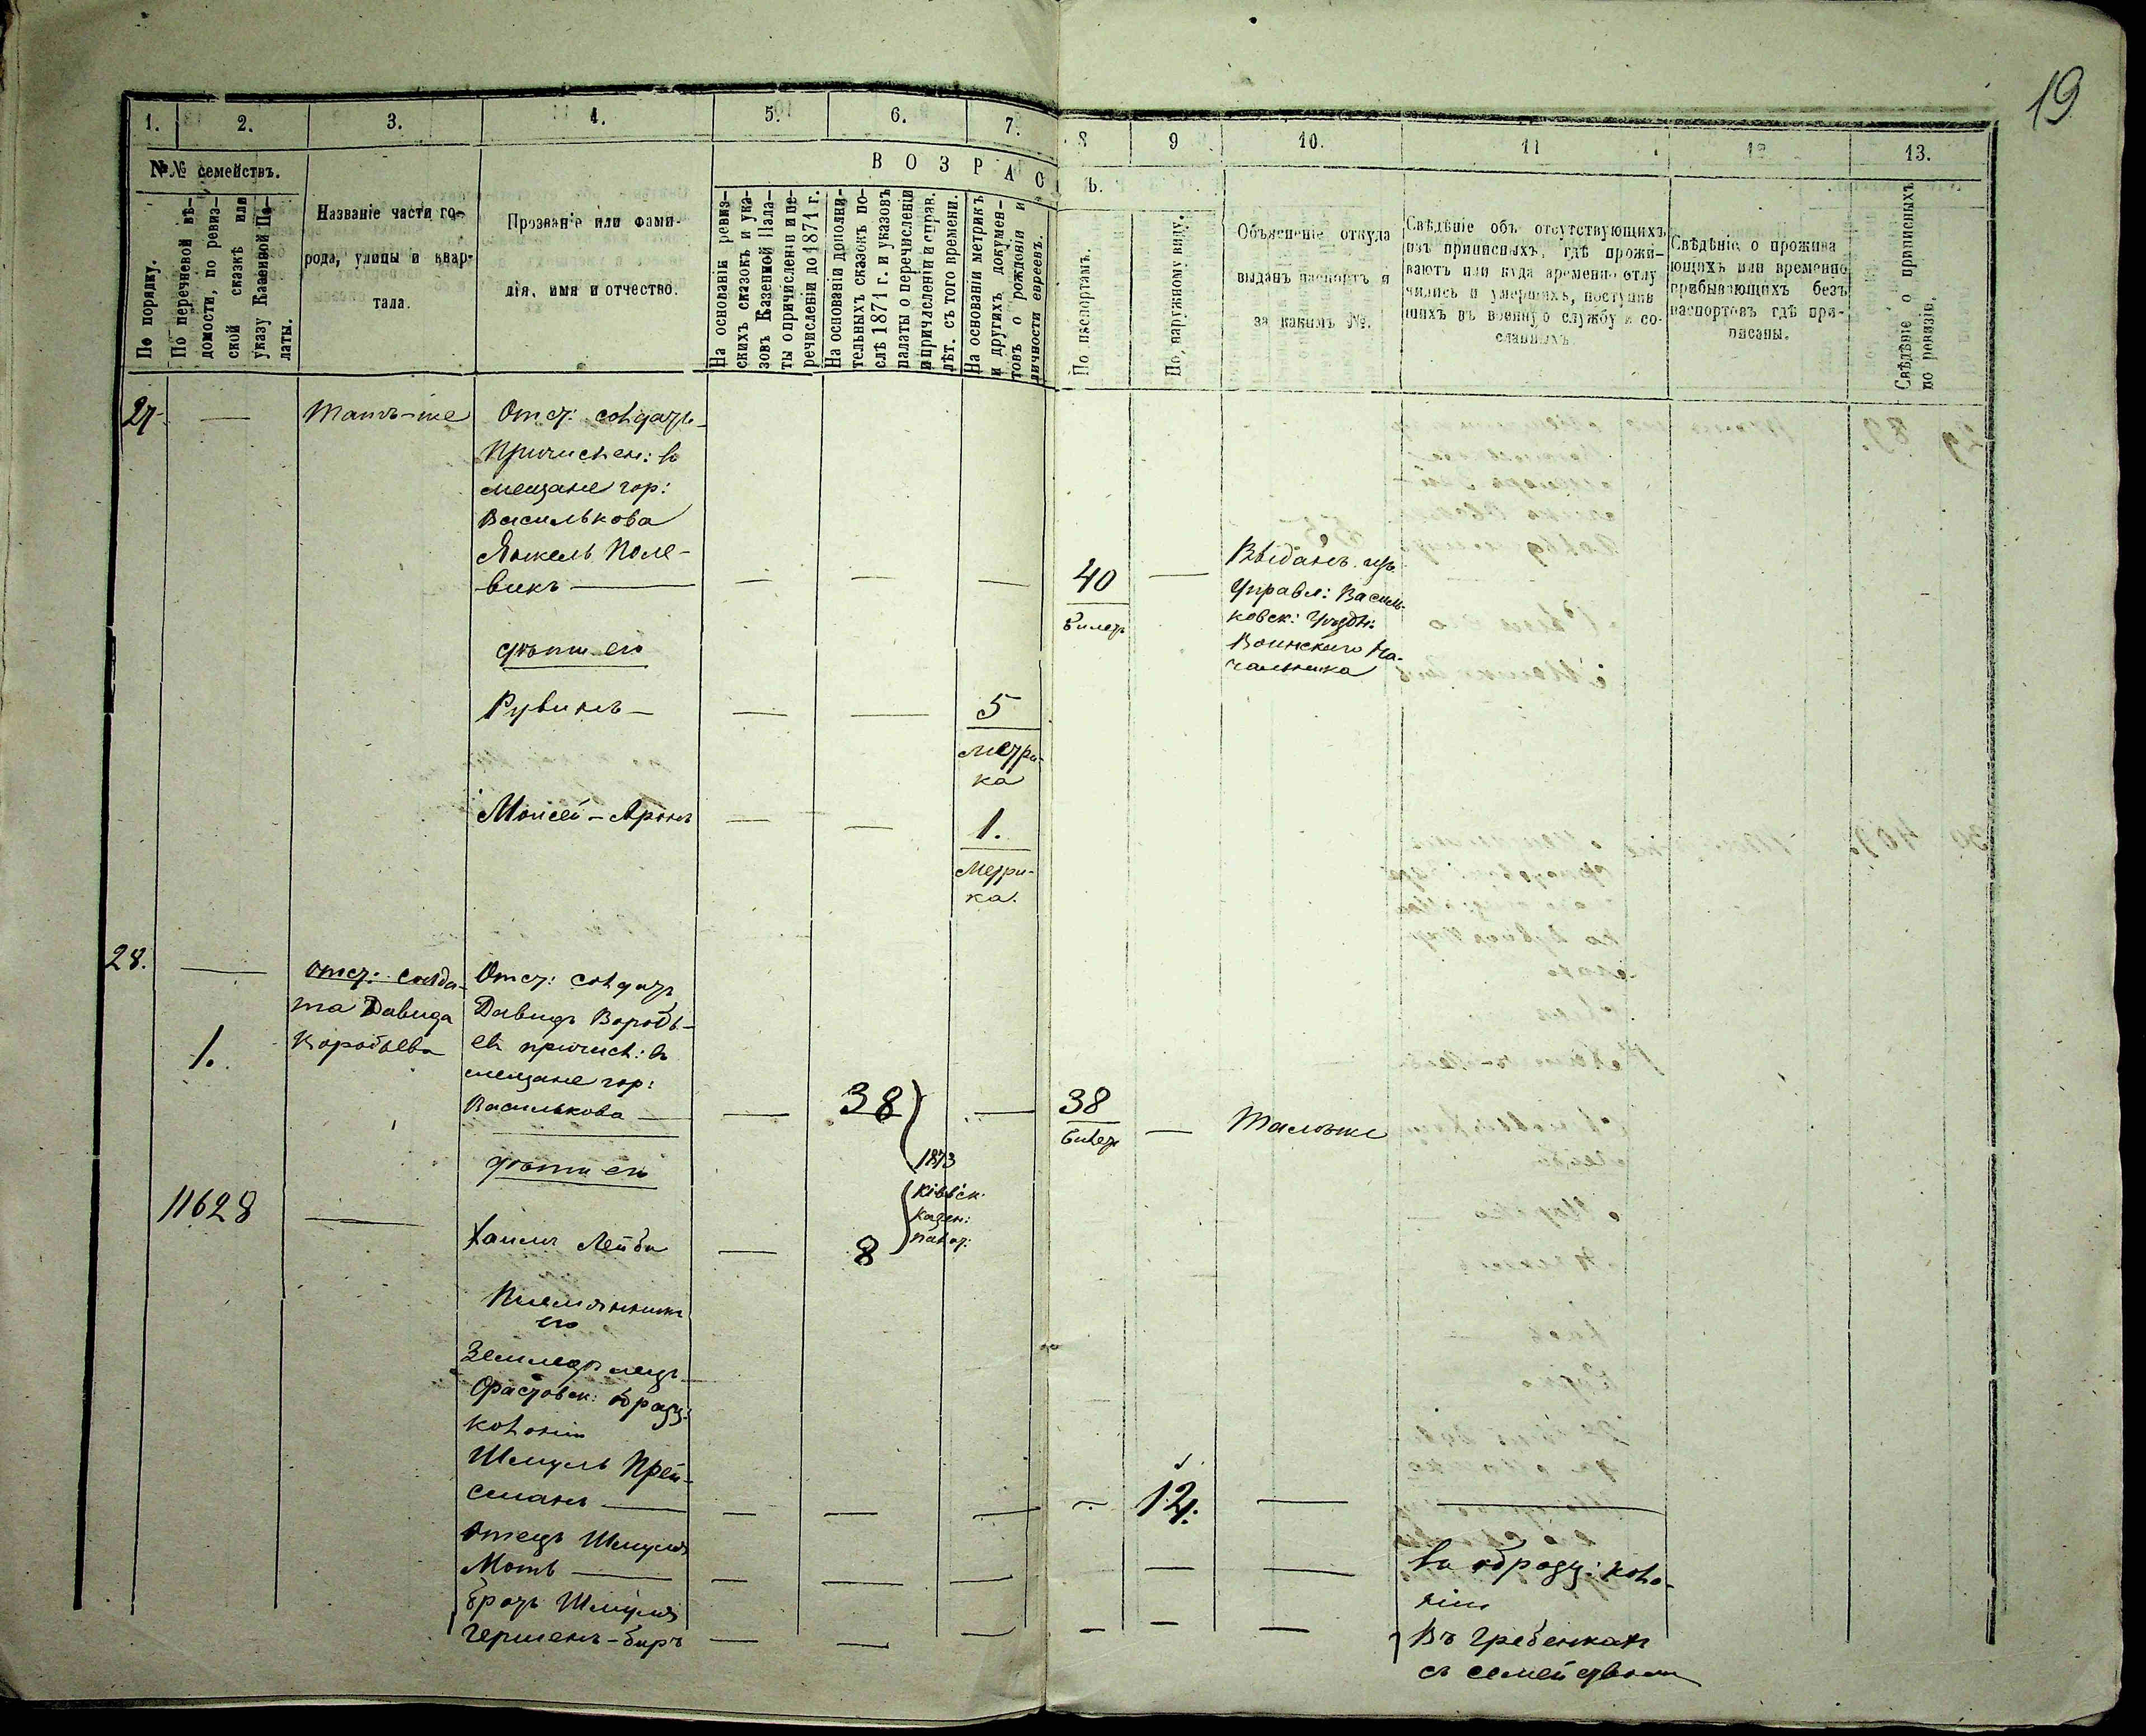 19
1.
2.
3.
4.
5.
6.
7.
8
9
10.
11
12
13.
№№ семействъ.
По порядку.
По перечневой вѣ-
домости, по ревиз-
ской сказкѣ или
указу Казенной Па-
латы.
Названіе части го-
рода, улицы и квар-
тала.
Прозваніе или фами-
лія, имя и отчество.
ВОЗРАС
Ъ.
На основаніи ревиз-
скихъ сказокъ и ука-
зовъ Казенной Пала-
ты о причисленіи и пе-
речисленіи до 1871 г.
На основаніи дополни-
тельныхъ сказокъ по-
слѣ 1871 г. и указовъ
палаты о перечисленіи
и причисленіи и справ.
лѣт. съ того времени.
На основаніи метрикъ
и другихъ докумен-
товъ о рожденіи и
личности евреевъ.
По паспортамъ.
По наружному виду.
Объясненіе откуда
выданъ паспортъ и
за какимъ №.
Свѣдѣніе объ отсутствующихъ
изъ приписныхъ, гдѣ прожи-
ваютъ или куда временно отлу
чились и умершихъ, поступив
шихъ въ военную службу и со-
сланныхъ.
Свѣдѣніе о прожива
ющихъ или временно
прибывающихъ безъ
паспортовъ гдѣ при-
писаны.
Свѣдѣніе о приписныхъ
по ревизіи.
27. — Тамъ-же Отст: солдатъ
Причислен: въ
мещане гор:
Василькова
Янкель Поле-
викъ — — — — 40 —
билетъ
Выданъ изъ
Управл: Василь-
ковск: Уѣздн:
Воинскаго На-
чальника
дѣти его
Рувинъ — — — 5
Метри-
ка
Моисей-Аронъ — — 1.
Метри-
ка.
28. — отст: солда-
та Давида
Воробьева
1.
Отст: солдатъ
Давидъ Воробь-
евъ причисл: въ
мещане гор:
Василькова — — 38 — 38 — Тамъже
билетъ
1873
Кіевск.
Казен:
палат:
дѣти его
11628 — Хаимъ Лейба — 8
Племянникъ
его
Земледѣлецъ
Фастовск: образц:
колоніи
Шмуль Прей-
сманъ — — — — — 12. — —
Отецъ Шмуля
Моть — — — — — — въ образц: коло-
ніи
братъ Шмуля
Гершенъ-Беръ — — — — — — Въ Гребенкахъ
съ семействомъ